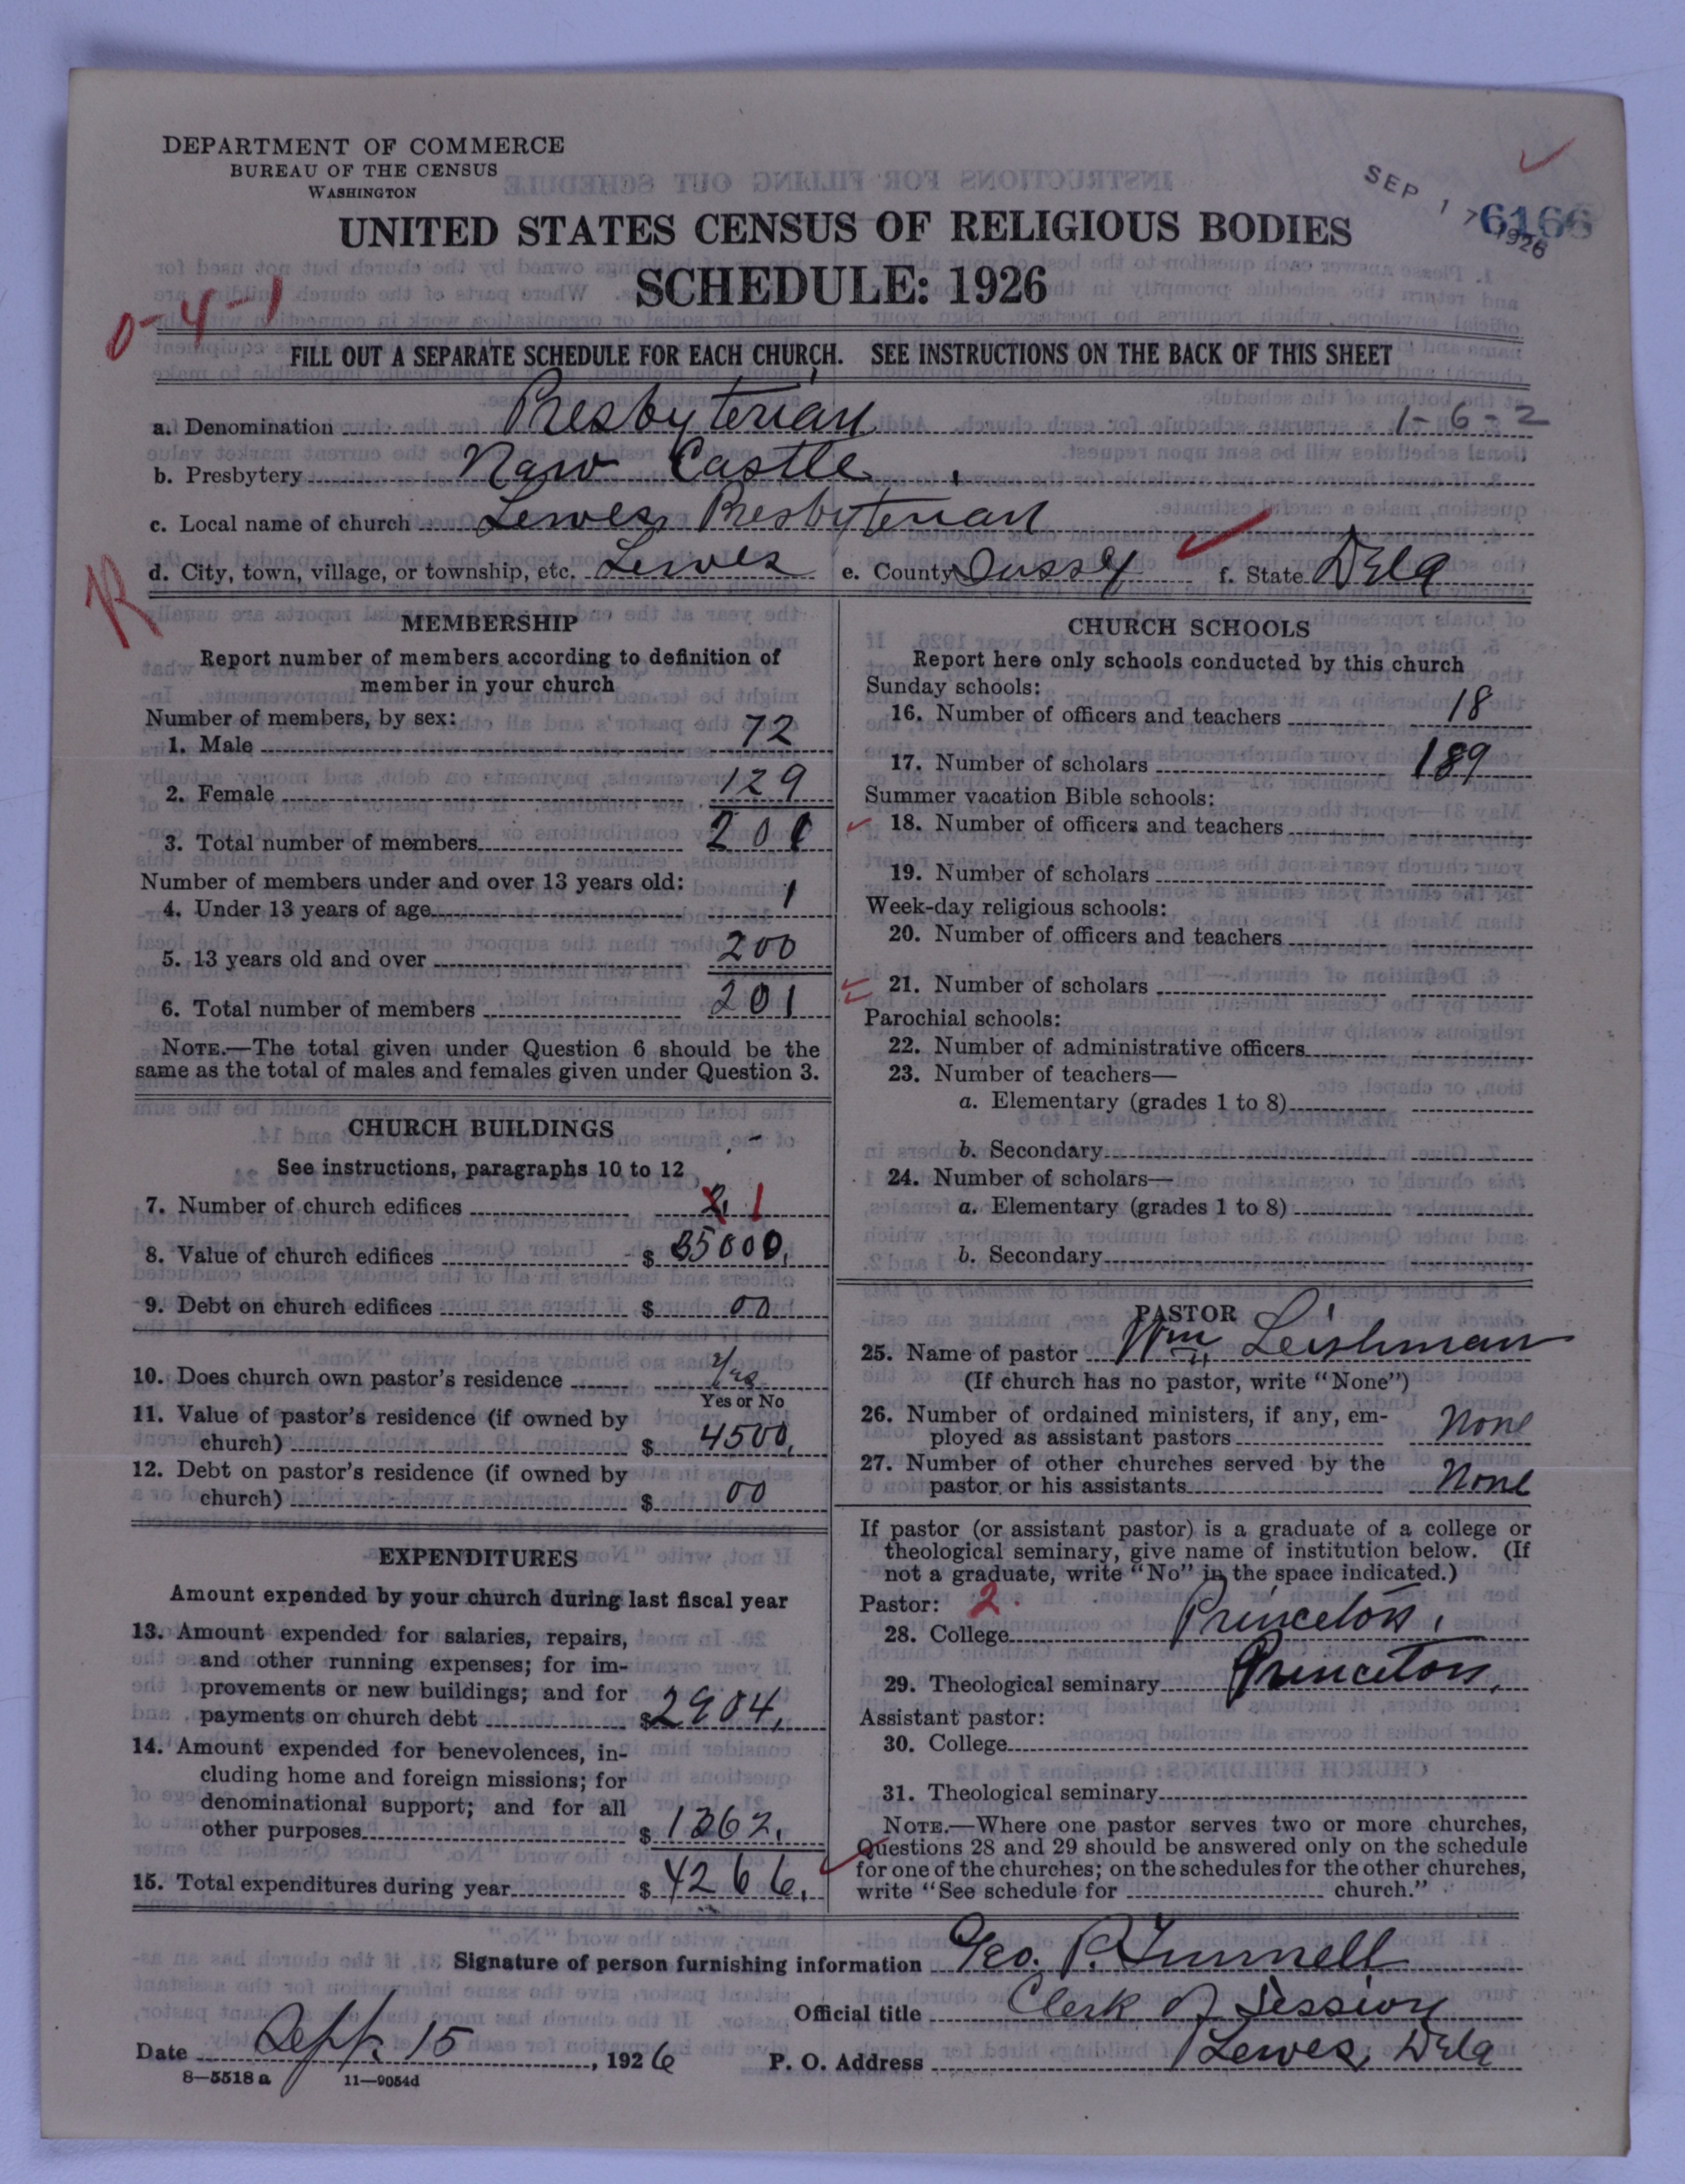 DEPARTMENT OF COMMERCE
BUREAU OF THE CENSUS
WASHINGTON
SEP 17 1926
6166
UNITED STATES CENSUS OF RELIGIOUS BODIES
SCHEDULE: 1926
0-4-1
FILL OUT A SEPARATE SCHEDULE FOR EACH CHURCH. SEE INSTRUCTIONS ON THE BACK OF THIS SHEET
a. Denomination Presbyterian 1-6-2
b. Presbytery New Castle
c. Local name of church Lewes Presbyterian
R
d. City, town, village, or township, etc. Lewes e. County Sussex f. State Dela
MEMBERSHIP
Report number of members according to definition of
member in your church
Number of members, by sex:
1. Male 72
2. Female 129
3. Total number of members 201
Number of members under and over 13 years old:
4. Under 13 years of age 1
5. 13 years old and over 200
6. Total number of members 201
NOTE.—The total given under Question 6 should be the
same as the total of males and females given under Question 3.
CHURCH BUILDINGS
See instructions, paragraphs 10 to 12
7. Number of church edifices 2 1
8. Value of church edifices $ 35000.
9. Debt on church edifices $ 00
10. Does church own pastor's residence Yes
Yes or No
11. Value of pastor's residence (if owned by
church) $ 4500.
12. Debt on pastor's residence (if owned by
church) $ 00
EXPENDITURES
Amount expended by your church during last fiscal year
13. Amount expended for salaries, repairs,
and other running expenses; for im-
provements or new buildings; and for
payments on church debt $ 2904.
14. Amount expended for benevolences, in-
cluding home and foreign missions; for
denominational support; and for all
other purposes $ 1362.
15. Total expenditures during year $ 4266.
CHURCH SCHOOLS
Report here only schools conducted by this church
Sunday schools:
16. Number of officers and teachers 18
17. Number of scholars 189
Summer vacation Bible schools:
18. Number of officers and teachers
19. Number of scholars
Week-day religious schools:
20. Number of officers and teachers
21. Number of scholars
Parochial schools:
22. Number of administrative officers
23. Number of teachers—
a. Elementary (grades 1 to 8)
b. Secondary
24. Number of scholars—
a. Elementary (grades 1 to 8)
b. Secondary
PASTOR
25. Name of pastor Wm Leishman
(If church has no pastor, write "None")
26. Number of ordained ministers, if any, em-
ployed as assistant pastors None
27. Number of other churches served by the
pastor or his assistants None
If pastor (or assistant pastor) is a graduate of a college or
theological seminary, give name of institution below. (If
not a graduate, write "No" in the space indicated.)
Pastor: 2.
28. College Princeton.
29. Theological seminary Princeton.
Assistant pastor:
30. College
31. Theological seminary
NOTE.—Where one pastor serves two or more churches,
Questions 28 and 29 should be answered only on the schedule
for one of the churches; on the schedules for the other churches,
write "See schedule for church."
Signature of person furnishing information Geo. P. Tunnell
Official title Clerk of Session
Date Sept 15, 1926 P. O. Address Lewes, Dela
8—5518 a 11—9054d